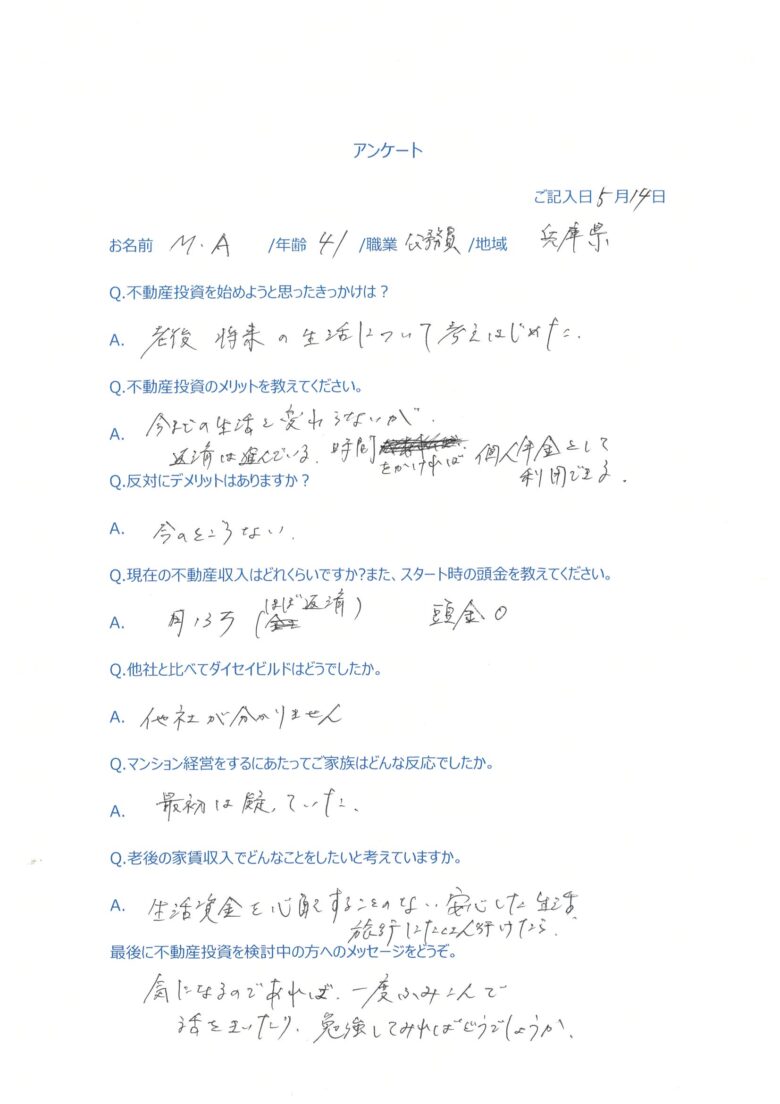 アンケート
ご記入日 5月14日
お名前 M.A /年齢 41 /職業 公務員 /地域 兵庫県
Q.不動産投資を始めようと思ったきっかけは？
A. 老後 将来の生活について考えはじめた.
Q.不動産投資のメリットを教えてください。
A. 今までの生活と変わらないが.
返済は進んでいる. 時間
をかければ 個人年金として
利用できる.
Q.反対にデメリットはありますか？
A. 今のところない.
Q.現在の不動産収入はどれくらいですか?また、スタート時の頭金を教えてください。
A. 月13万 (ほぼ返済) 頭金0
Q.他社と比べてダイセイビルドはどうでしたか。
A. 他社が分かりません
Q.マンション経営をするにあたってご家族はどんな反応でしたか。
A. 最初は疑っていた.
Q.老後の家賃収入でどんなことをしたいと考えていますか。
A. 生活資金を心配することのない安心した生活.
旅行にたくさん行けたら.
最後に不動産投資を検討中の方へのメッセージをどうぞ。
気になるのであれば. 一度ふみこんで
話をきいたり. 勉強してみればどうでしょうか.